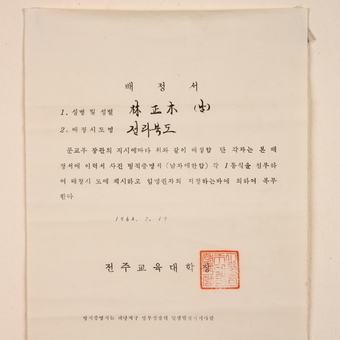 배 정 서
1. 성명 및 성별 林 正 木 (남)
2. 배정시도명 전라북도
문교부 장관의 지시에따라 위와 같이 배정함 단 각자는 본 배
정서에 이력서 사진 병적증명서 (남자에한함) 각 1통식을 첨부하
여 배정시 도에 제시하고 임명권자의 지정하는바에 의하여 복무
한다
전 주 교 육 대 학 장